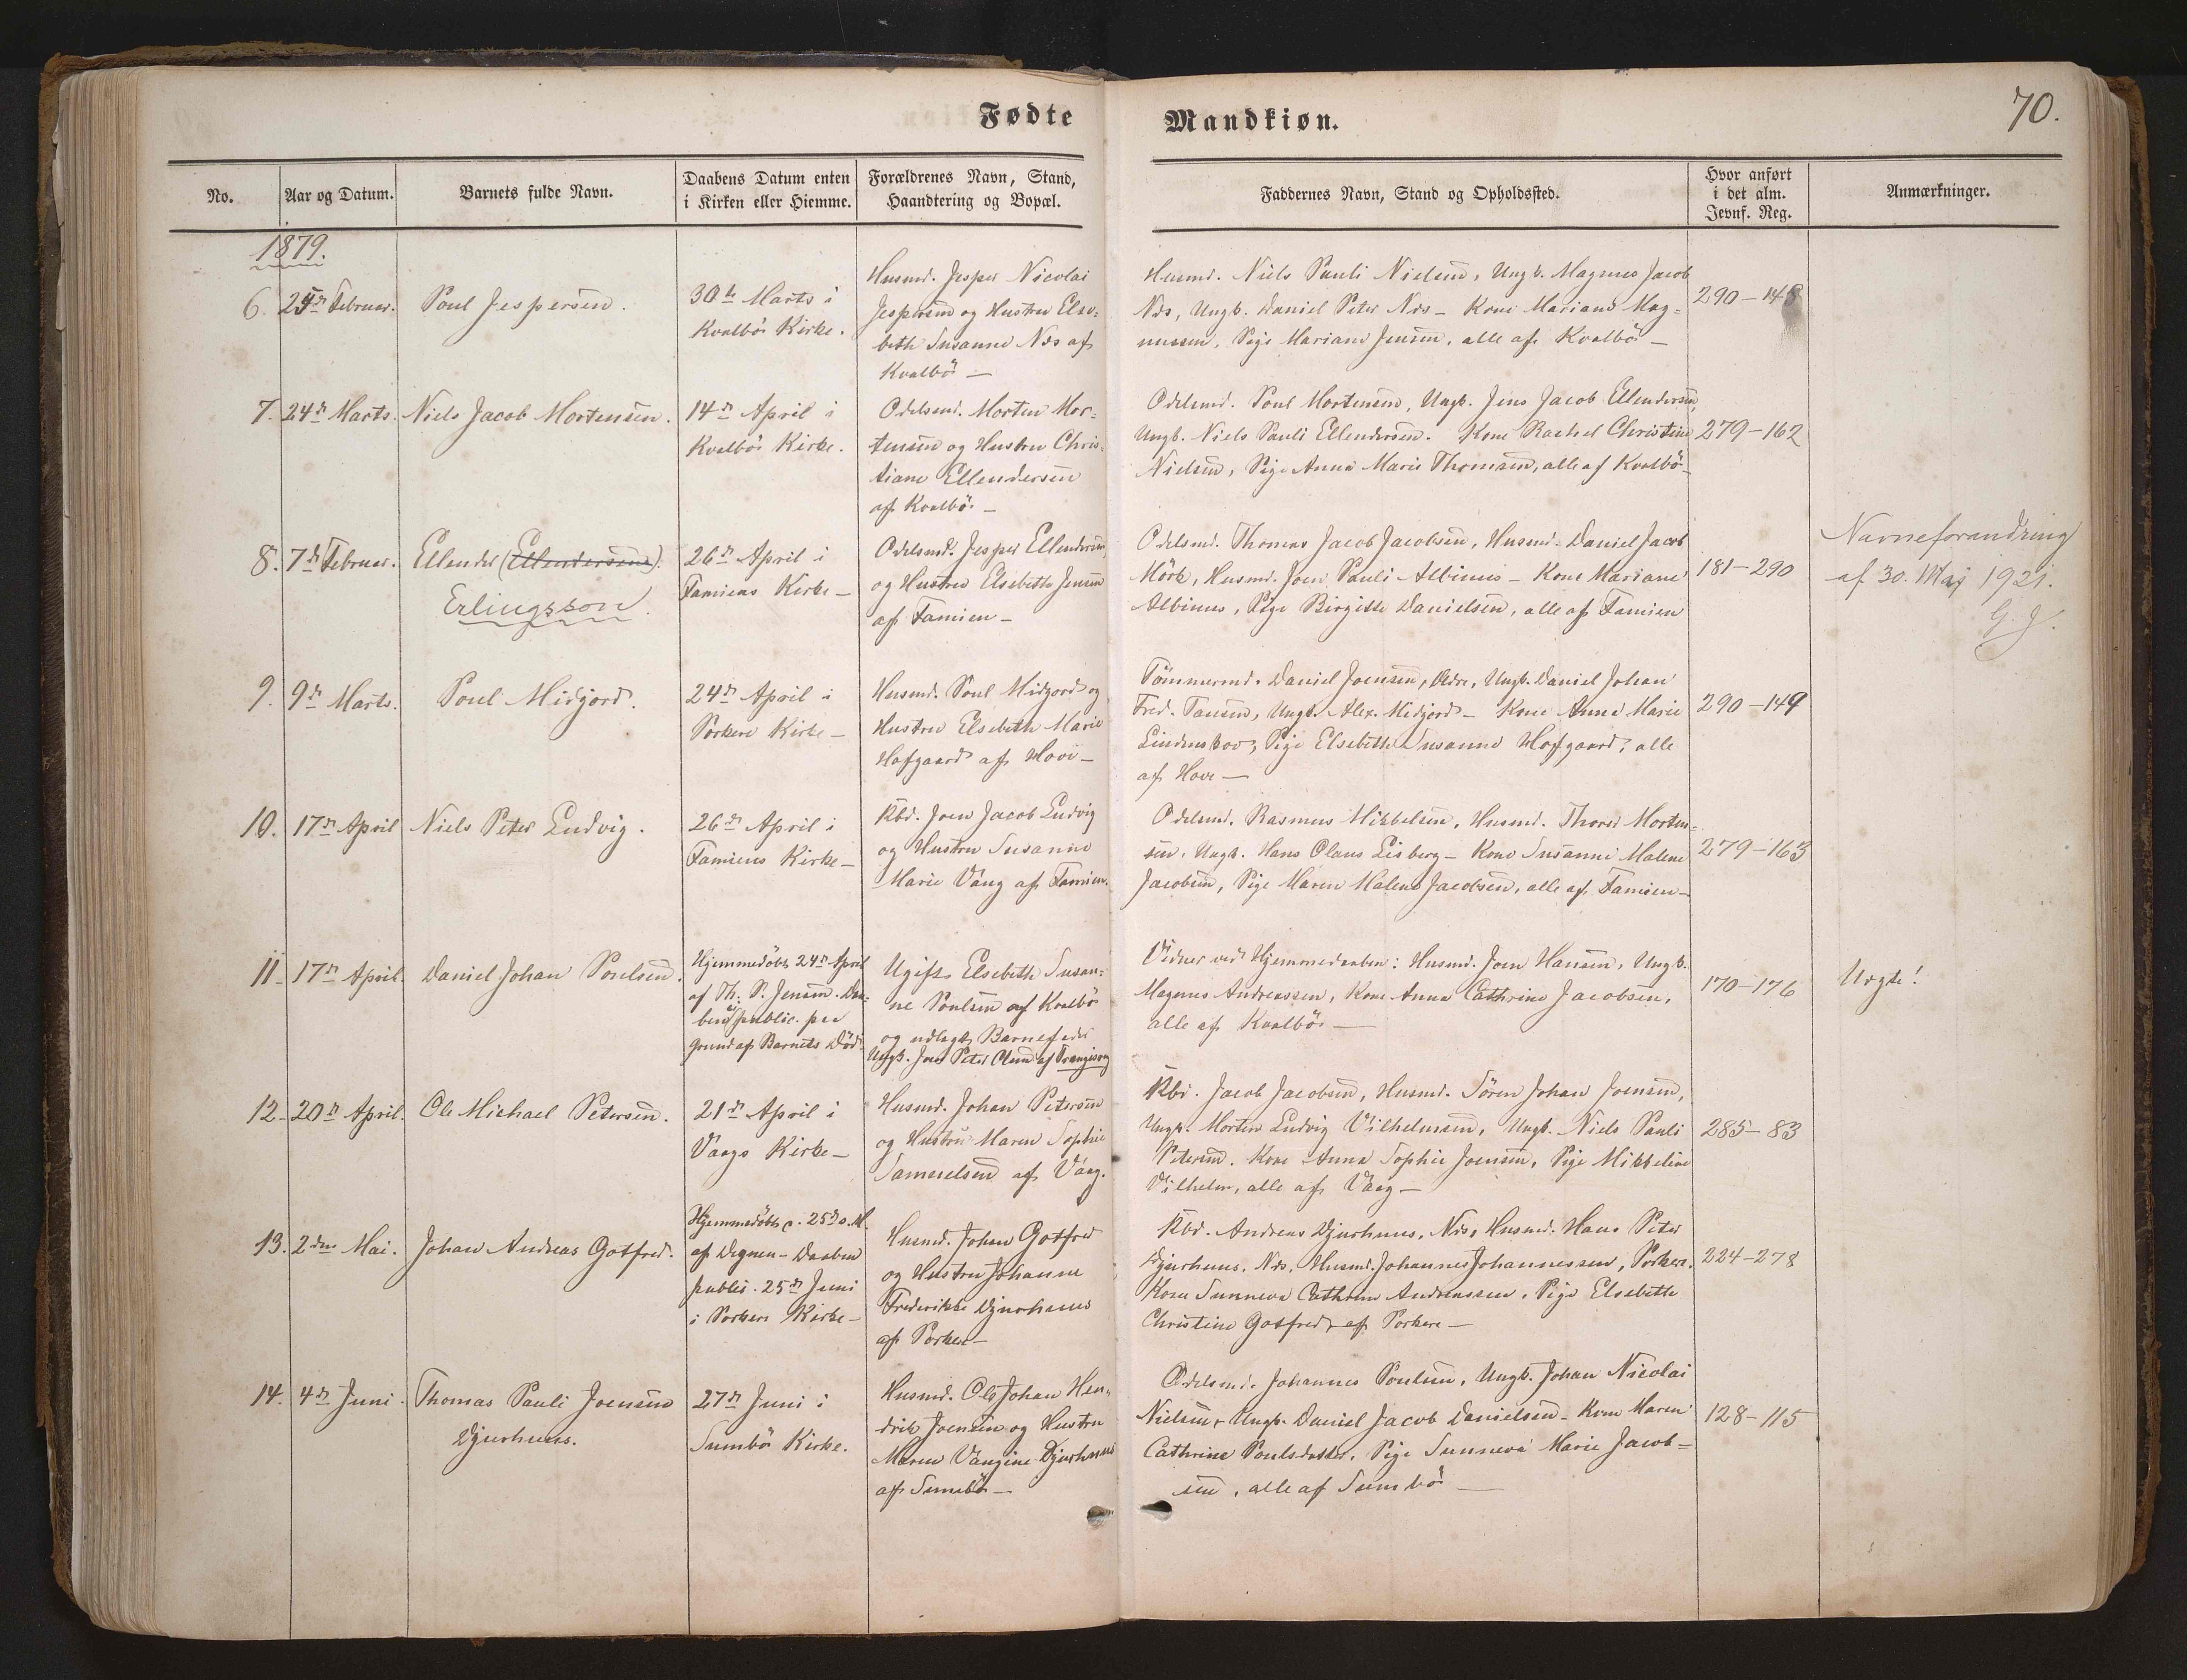 Fødte
Mandkiøn.
70.
No.
Aar og Datum.
Barnets fulde Navn.
Daabens Datum enten
i Kirken eller Hiemme.
Forældrenes Navn, Stand,
Haandtering og Bopæl.
Faddernes Navn, Stand og Opholdssted.
Hvor anført
i det alm.
Jevnf. Reg.
Anmærkninger.
1879.
6. 25de Februar.
Poul Jespersen.
30te Marts i
Kvalbö Kirke.
Husmd. Jesper Nicolai
Jespersen og Hustru Else-
beth Susanne Nds af
Kvalbö —
Husmd. Niels Pauli Nielsen, Ungk. Magnus Jacob
Nds, Ungk. Daniel Peter Nds — Kone Mariane Mag-
nussen, Pige Mariane Jensen, alle af Kvalbö —
290 — 148
7. 24de Marts.
Niels Jacob Mortensen.
14de April i
Kvalbö Kirke.
Odelsmd. Morten Mor-
tensen og Hustru Chris-
tiane Ellendersen
af Kvalbö —
Odelsmd. Poul Mortensen, Ungk. Jens Jacob Ellendersen,
Ungk. Niels Pauli Ellendersen. Kone Rachel Christine
Nielsen, Pige Anna Marie Thomsen, alle af Kvalbö —
279 — 162
8. 7de Februar.
Ellender (Ellendersen).
Erlingsson.
26de April i
Famiens Kirke —
Odelsmd. Jesper Ellendersen
og Hustru Elsebeth Jensen
af Famien —
Odelsmd. Thomas Jacob Jacobsen, Husmd. Daniel Jacob
Mörk, Husmd. Joen Pauli Albinus — Kone Mariane
Albinus, Pige Birgitte Danielsen, alle af Famien
181 — 290
Navneforandring
af 30. Maj 1921.
G. J.
9. 9de Marts.
Poul Midjord.
24de April i
Porkere Kirke —
Husmd. Poul Midjord og
Hustru Elsebeth Marie
Hofgaard af Hove —
Tömmermd. Daniel Joensen, Ördr, Ungk. Daniel Johan
Fred. Tausen, Ungk. Alex. Midjord — Kone Anne Marie
Lindenskov, Pige Elsebeth Susanne Hofgaard, alle
af Hove —
290 — 149
10. 17de April
Niels Peter Ludvig.
26de April i
Famiens Kirke —
Kbd. Joen Jacob Ludvig
og Hustru Susanne
Marie Vang af Famien.
Odelsmd. Rasmus Mikkelsen, Husmd. Thorer Morten-
sen, Ungk. Hans Claus Lisberg — Kone Susanne Malene
Jacobsen, Pige Maren Malene Jacobsen, alle af Famien —
279 — 163
11. 17de April.
Daniel Johan Poulsen.
Hjemmedöbt 24de April
af Th. P. Jensen. Daa-
ben ei public. paa
Grund af Barnets Död.
Ugift Elsebeth Susan-
ne Poulsen af Kvalbö
og udlagt Barnefader
Ungk. Jens Peter Olsen af Frangisvog
Vidner ved Hjemmedaaben: Husmd. Joen Hansen, Ungk.
Magnus Andreassen, Kone Anna Cathrine Jacobsen,
alle af Kvalbö —
170 — 176
Uægte!
12. 20de April.
Ole Michael Petersen.
21de April i
Vaags Kirke —
Husmd. Johan Petersen
og Hustru Maren Sophie
Samuelsen af Vaag.
Kbd. Jacob Jacobsen, Husmd. Sören Johan Joensen,
Ungk. Morten Ludvig Vilhelmsen, Ungk. Niels Pauli
Petersen. Kone Anna Sophie Joensen, Pige Mikkeline
Vilhelm, alle af Vaag —
285 — 83
13. 2den Mai.
Johan Andreas Gotfred.
Hjemmedöbt c. 25de s. M.
af Degnen — Daaben
public. 25de Juni
i Porkere Kirke —
Husmd. Johan Gotfred
og Hustru Johanne
Frederikke Djurhuus
af Porkere —
Kbd. Andreas Djurhuus, Nds, Husmd. Hans Peter
Djurhuus, Nds, Husmd. Johannes Johannessen, Porkere.
Kone Sunneva Cathrine Andreassen, Pige Elsebeth
Christine Gotfred, af Porkere —
224 — 278
14. 4de Juni.
Thomas Pauli Joensen
Djurhuus.
27de Juni i
Sumbö Kirke.
Husmd. Ole Johan Hen-
drik Joensen og Hustru
Maren Vangine Djurhuus
af Sumbö —
Odelsmd. Johannes Poulsen, Ungk. Johan Nicolai
Nielsen, Ungk. Daniel Jacob Danielsen — Kone Maren
Cathrine Poulsdatter, Pige Sunneva Marie Jacob-
sen, alle af Sumbö —
128 — 115